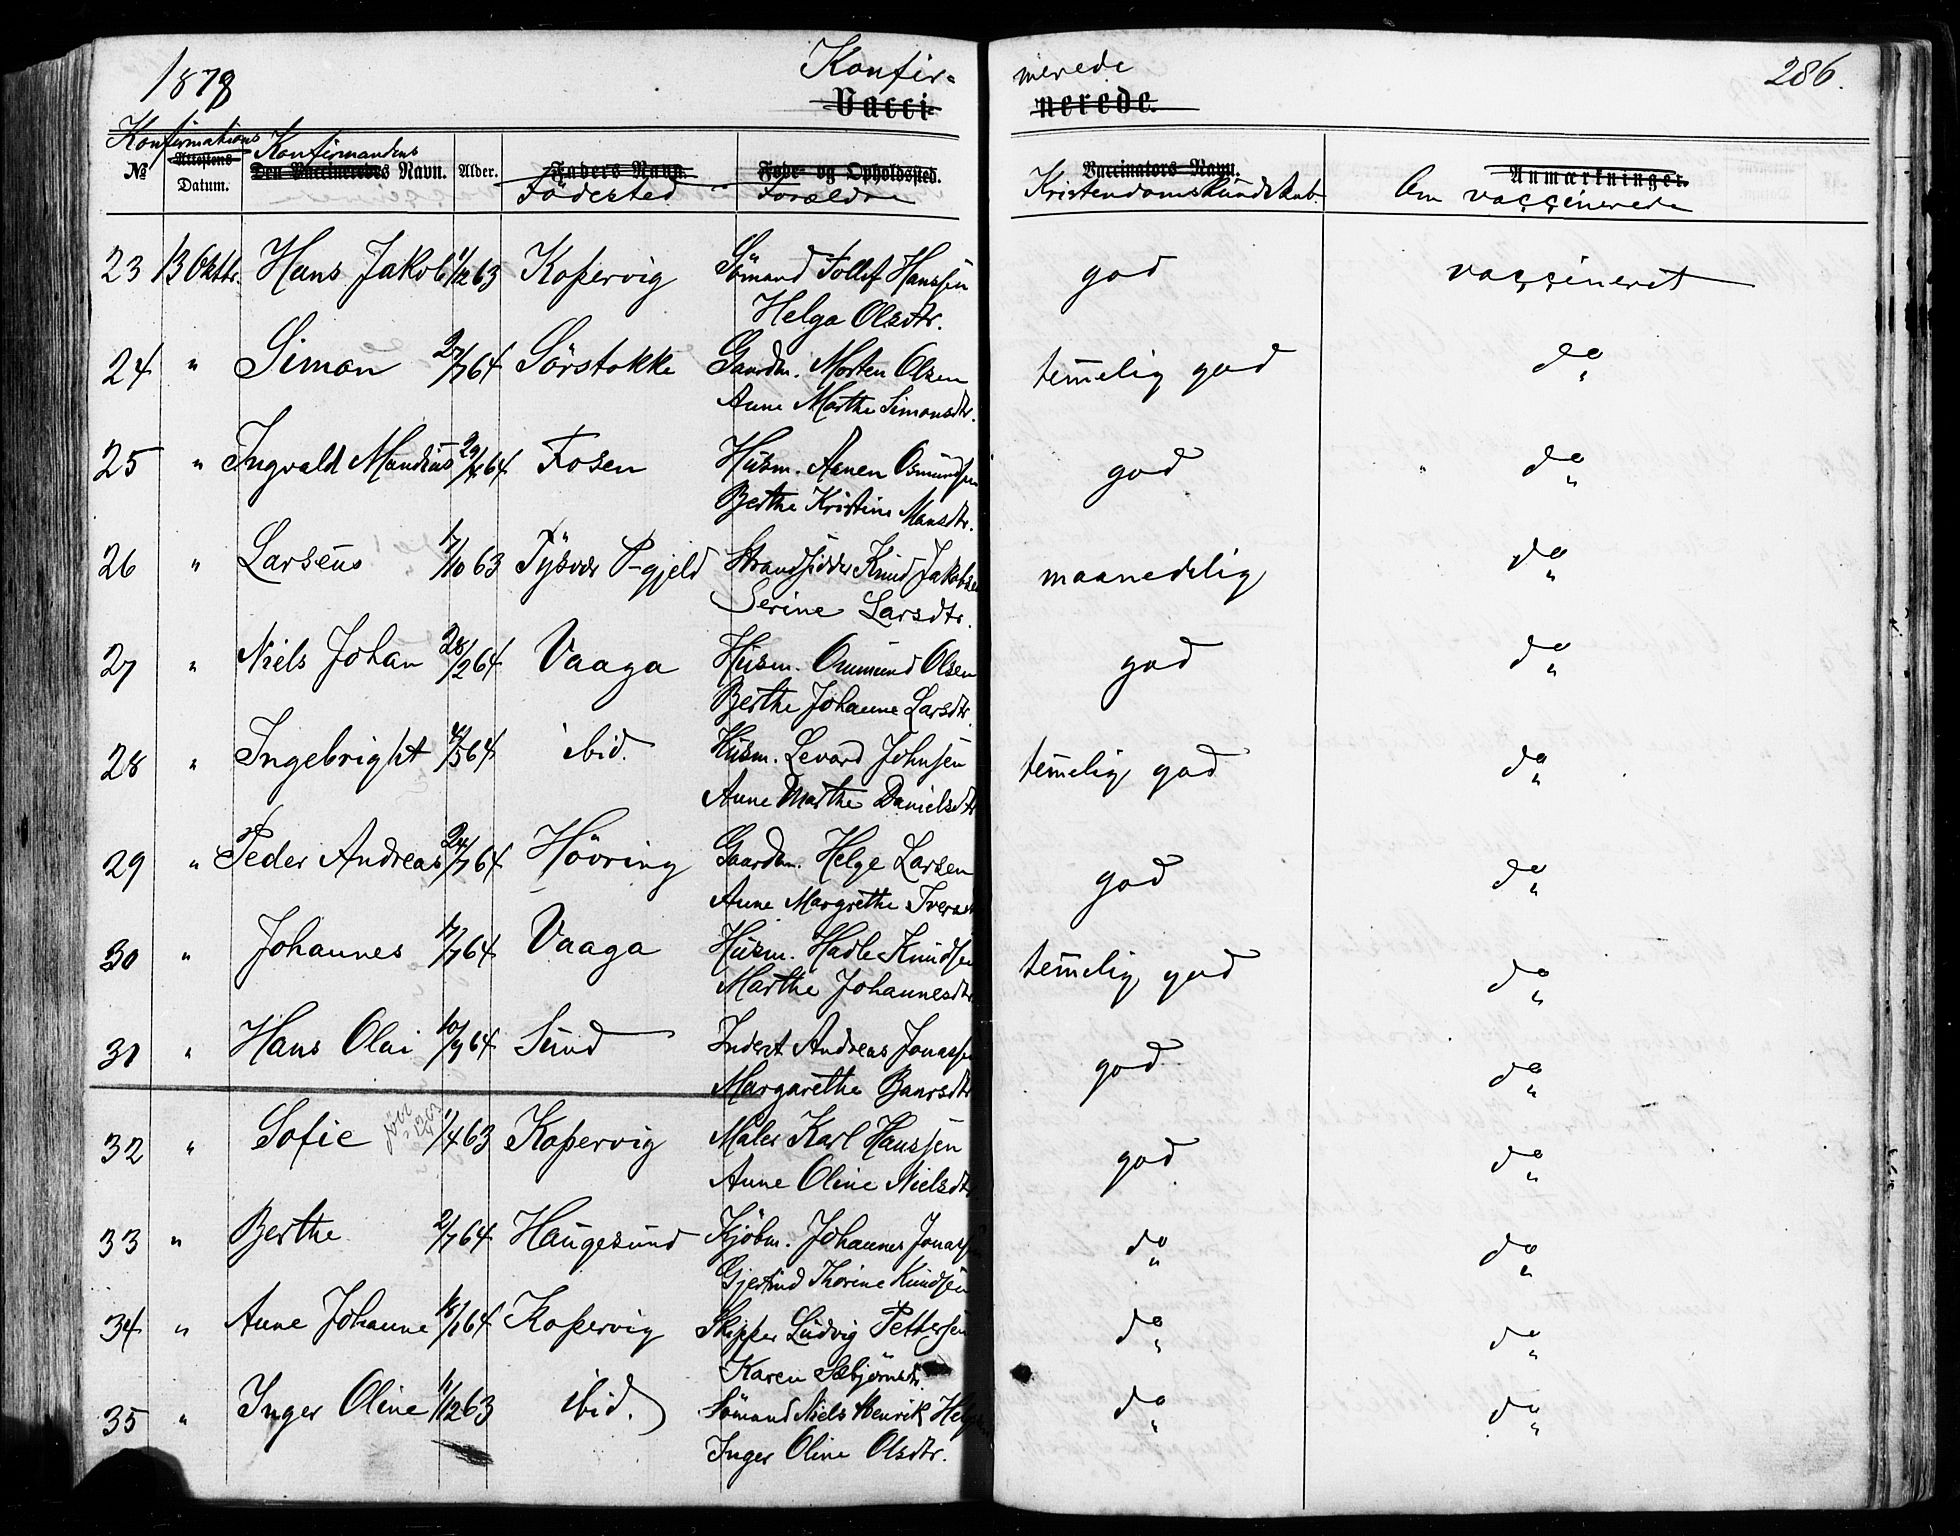 1878
Konfir-
merede
286.
Vacci-
nerede.
Konfirmations
Konfirmandens
№ Attestens Datum. Den Vaccineredes Navn. Alder. Faders Navn. Føde- og Opholdssted. Vaccinators Navn. Anmærkninger.
Födested Forældre Kristendomskundskab Om vaccinerede
23 13 Oktbr. Hans Jakob 1/12 63 Kopervig Sömand Tollef Hanssen god vaccineret
Helga Olsdtr.
24 " Simon 27/7 64 Sörstokke Gaardm. Morten Olsen temmelig god do
Anne Marthe Simonsdtr.
25 " Ingvald Mandius 29/4 64 Fosen Husm. Aanen Osmundsen god do
Berthe Kristine Mansdtr.
26 " Larseus 17/10 63 Tysvær P-gjeld Strandsidder Knud Jakobsen maanedelig do
Serine Larsdtr.
27 " Niels Johan 28/2 64 Vaaga Husm. Ommund Olsen god do
Berthe Johanne Larsdtr.
28 " Ingebright 4/5 64 ibid. Husm. Levard Johnsen temmelig god do
Anne Marthe Danielsdtr
29 " Peder Andreas 24/7 64 Hövring Gaardm. Helge Larsen god do
Anne Margrethe Iversdtr
30 " Johannes 17/7 64 Vaaga Husm. Hadle Knudsen temmelig god do
Marthe Johannesdtr
31 " Hans Olai 10/9 64 Sund Inderst Andreas Jonassen god do
Margarethe Baarsdtr
32 " Sofie 1/4 63 Kopervig Maler Karl Hanssen god do
Anne Oline Nielsdtr
33 " Berthe 2/7 64 Haugesund Kjöbm. Johannes Jonassen do do
Gjertrud Thorine Knudsen
34 " Anne Johanne 18/1 64 Kopervig Skipper Ludvig Pettersen do do
Karen Sæbjörnsdtr.
35 " Inger Oline 11/12 63 ibid. Sömand Niels Henrik do do
Inger Oline Olsdtr.